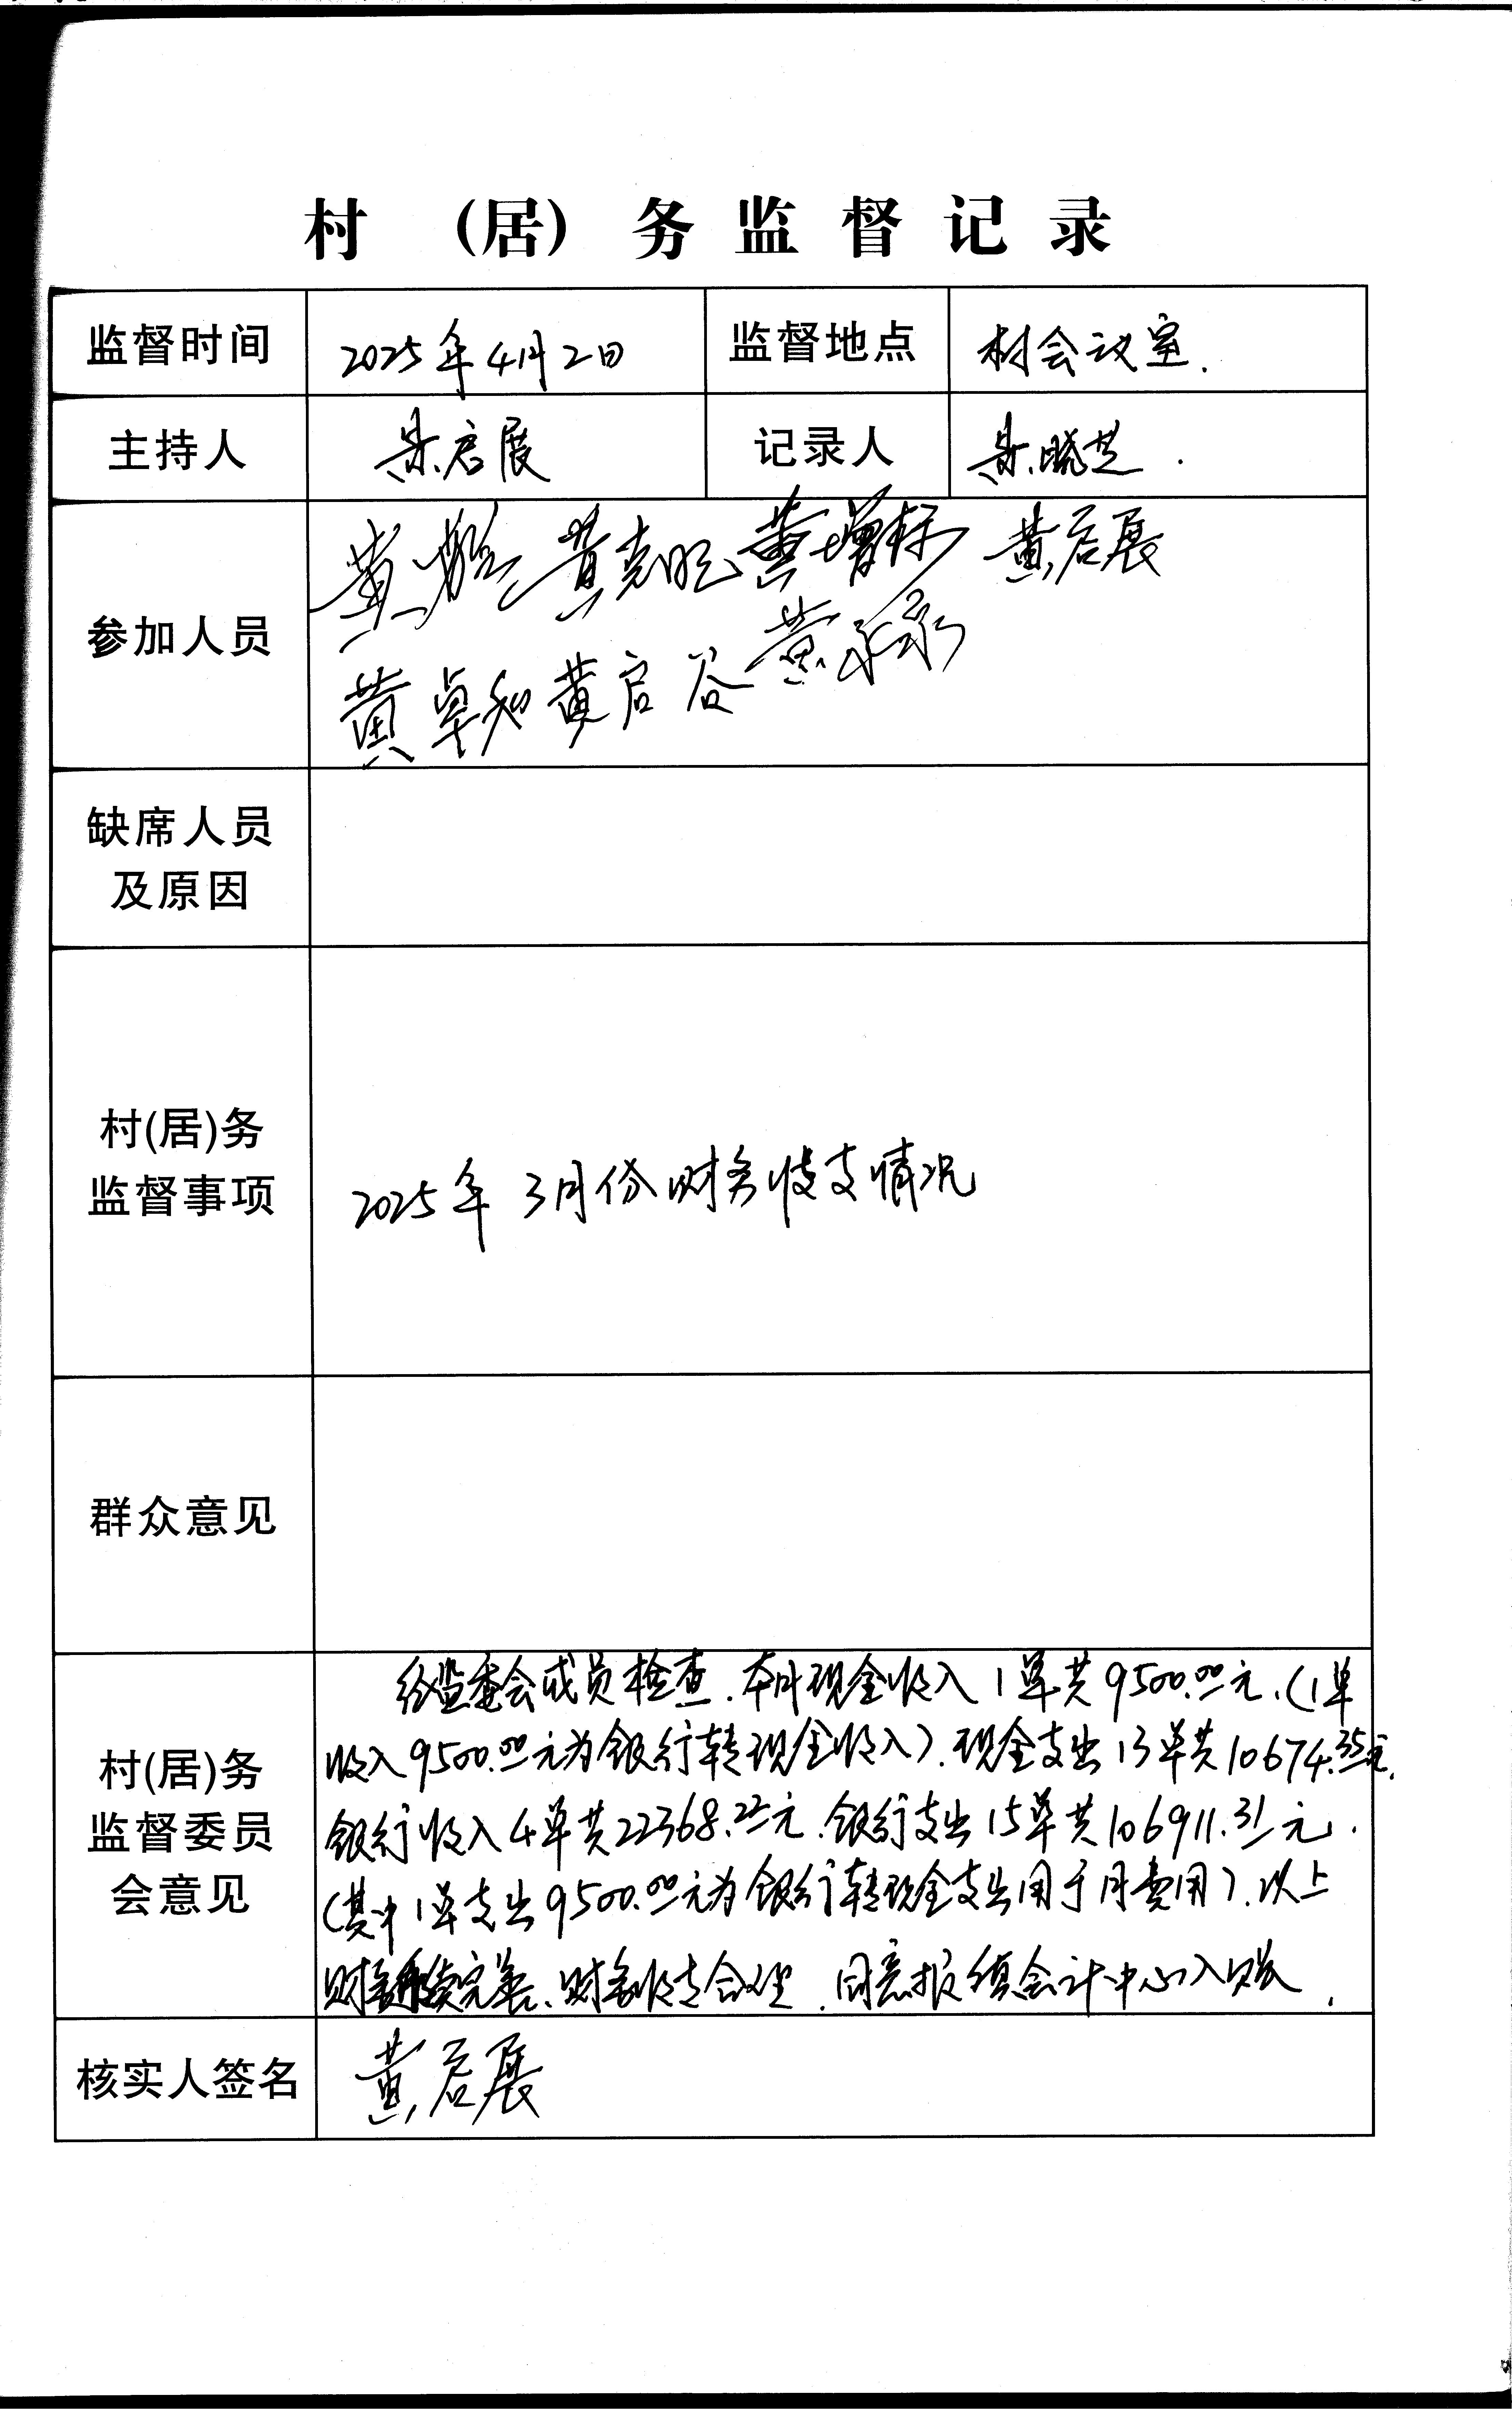 村 （居）务监督记录
监督时间 2025年4月2日 监督地点 村会议室.
主持人 黄启展 记录人 黄晓芝.
参加人员 黄 黄克 黄增标 黄启展
黄卓和 黄启谷 黄永
缺席人员
及原因
村(居)务
监督事项
2025年3月份财务收支情况
群众意见
村(居)务
监督委员
会意见
经监委会成员检查.本月现金收入1单共9500.00元.(1单
收入9500.00元为银行转现金收入).现金支出13单共10674.35元.
银行收入4单共22368.22元.银行支出15单共106911.31元.
(其中1单支出9500.00元为银行转现金支出用于月费用).以上
财务手续完善、财务收支合理.同意报镇会计中心入账.
核实人签名 黄启展